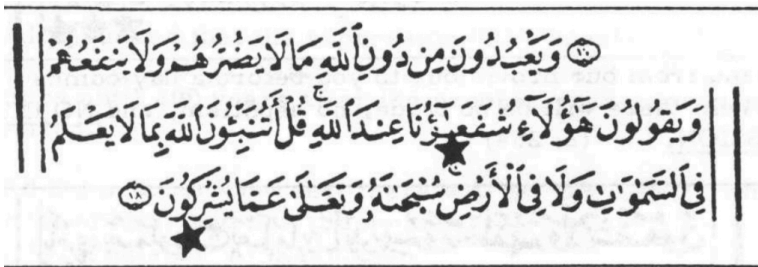 وَيَعْبُدُونَ مِن دُونِ ٱللَّهِ مَا لَا يَضُرُّهُمْ وَلَا يَنفَعُهُمْ
وَيَقُولُونَ هَٰٓؤُلَآءِ شُفَعَٰٓؤُنَا عِندَ ٱللَّهِ ۚ قُلْ أَتُنَبِّـُٔونَ ٱللَّهَ بِمَا لَا يَعْلَمُ
فِى ٱلسَّمَٰوَٰتِ وَلَا فِى ٱلْأَرْضِ ۚ سُبْحَٰنَهُۥ وَتَعَٰلَىٰ عَمَّا يُشْرِكُونَ ١٨